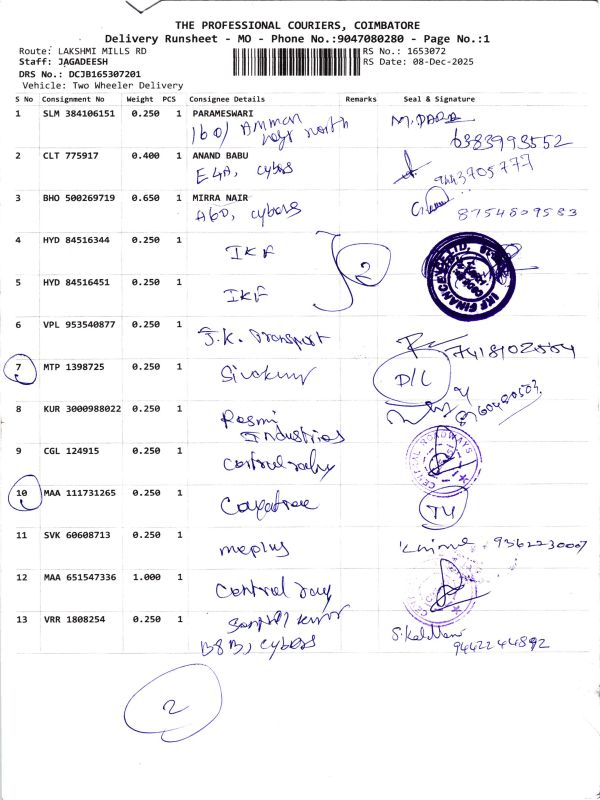 THE PROFESSIONAL COURIERS, COIMBATORE
Delivery Runsheet - MO - Phone No.:9047080280 - Page No.:1
Route: LAKSHMI MILLS RD RS No.: 1653072
Staff: JAGADEESH RS Date: 08-Dec-2025
DRS No.: DCJB165307201
Vehicle: Two Wheeler Delivery
S No Consignment No Weight PCS Consignee Details Remarks Seal & Signature
1 SLM 384106151 0.250 1 PARAMESWARI
160/ Amman north
6383993552
2 CLT 775917 0.400 1 ANAND BABU
E4A, cybers 9443705777
3 BHO 500269719 0.650 1 MIRRA NAIR
A60, cybers 8754809583
4 HYD 84516344 0.250 1 IKF 2
5 HYD 84516451 0.250 1 IKF
6 VPL 953540877 0.250 1 J.K. Transport 7418102554
7 MTP 1398725 0.250 1 Sivakumar D/L
8 KUR 3000988022 0.250 1 Rasmi
Industries
9 CGL 124915 0.250 1 CENTRAL ROADWAYS
10 MAA 111731265 0.250 1
11 SVK 60608713 0.250 1 meplus 9362230007
12 MAA 651547336 1.000 1 Central
13 VRR 1808254 0.250 1
B8B, cybers 9442244892
2